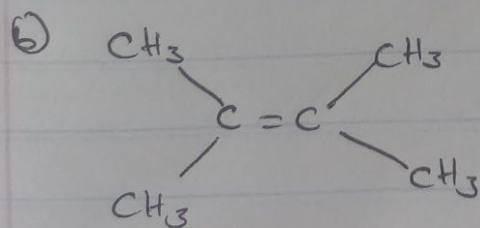 b) CH3 CH3
C = C
CH3 CH3